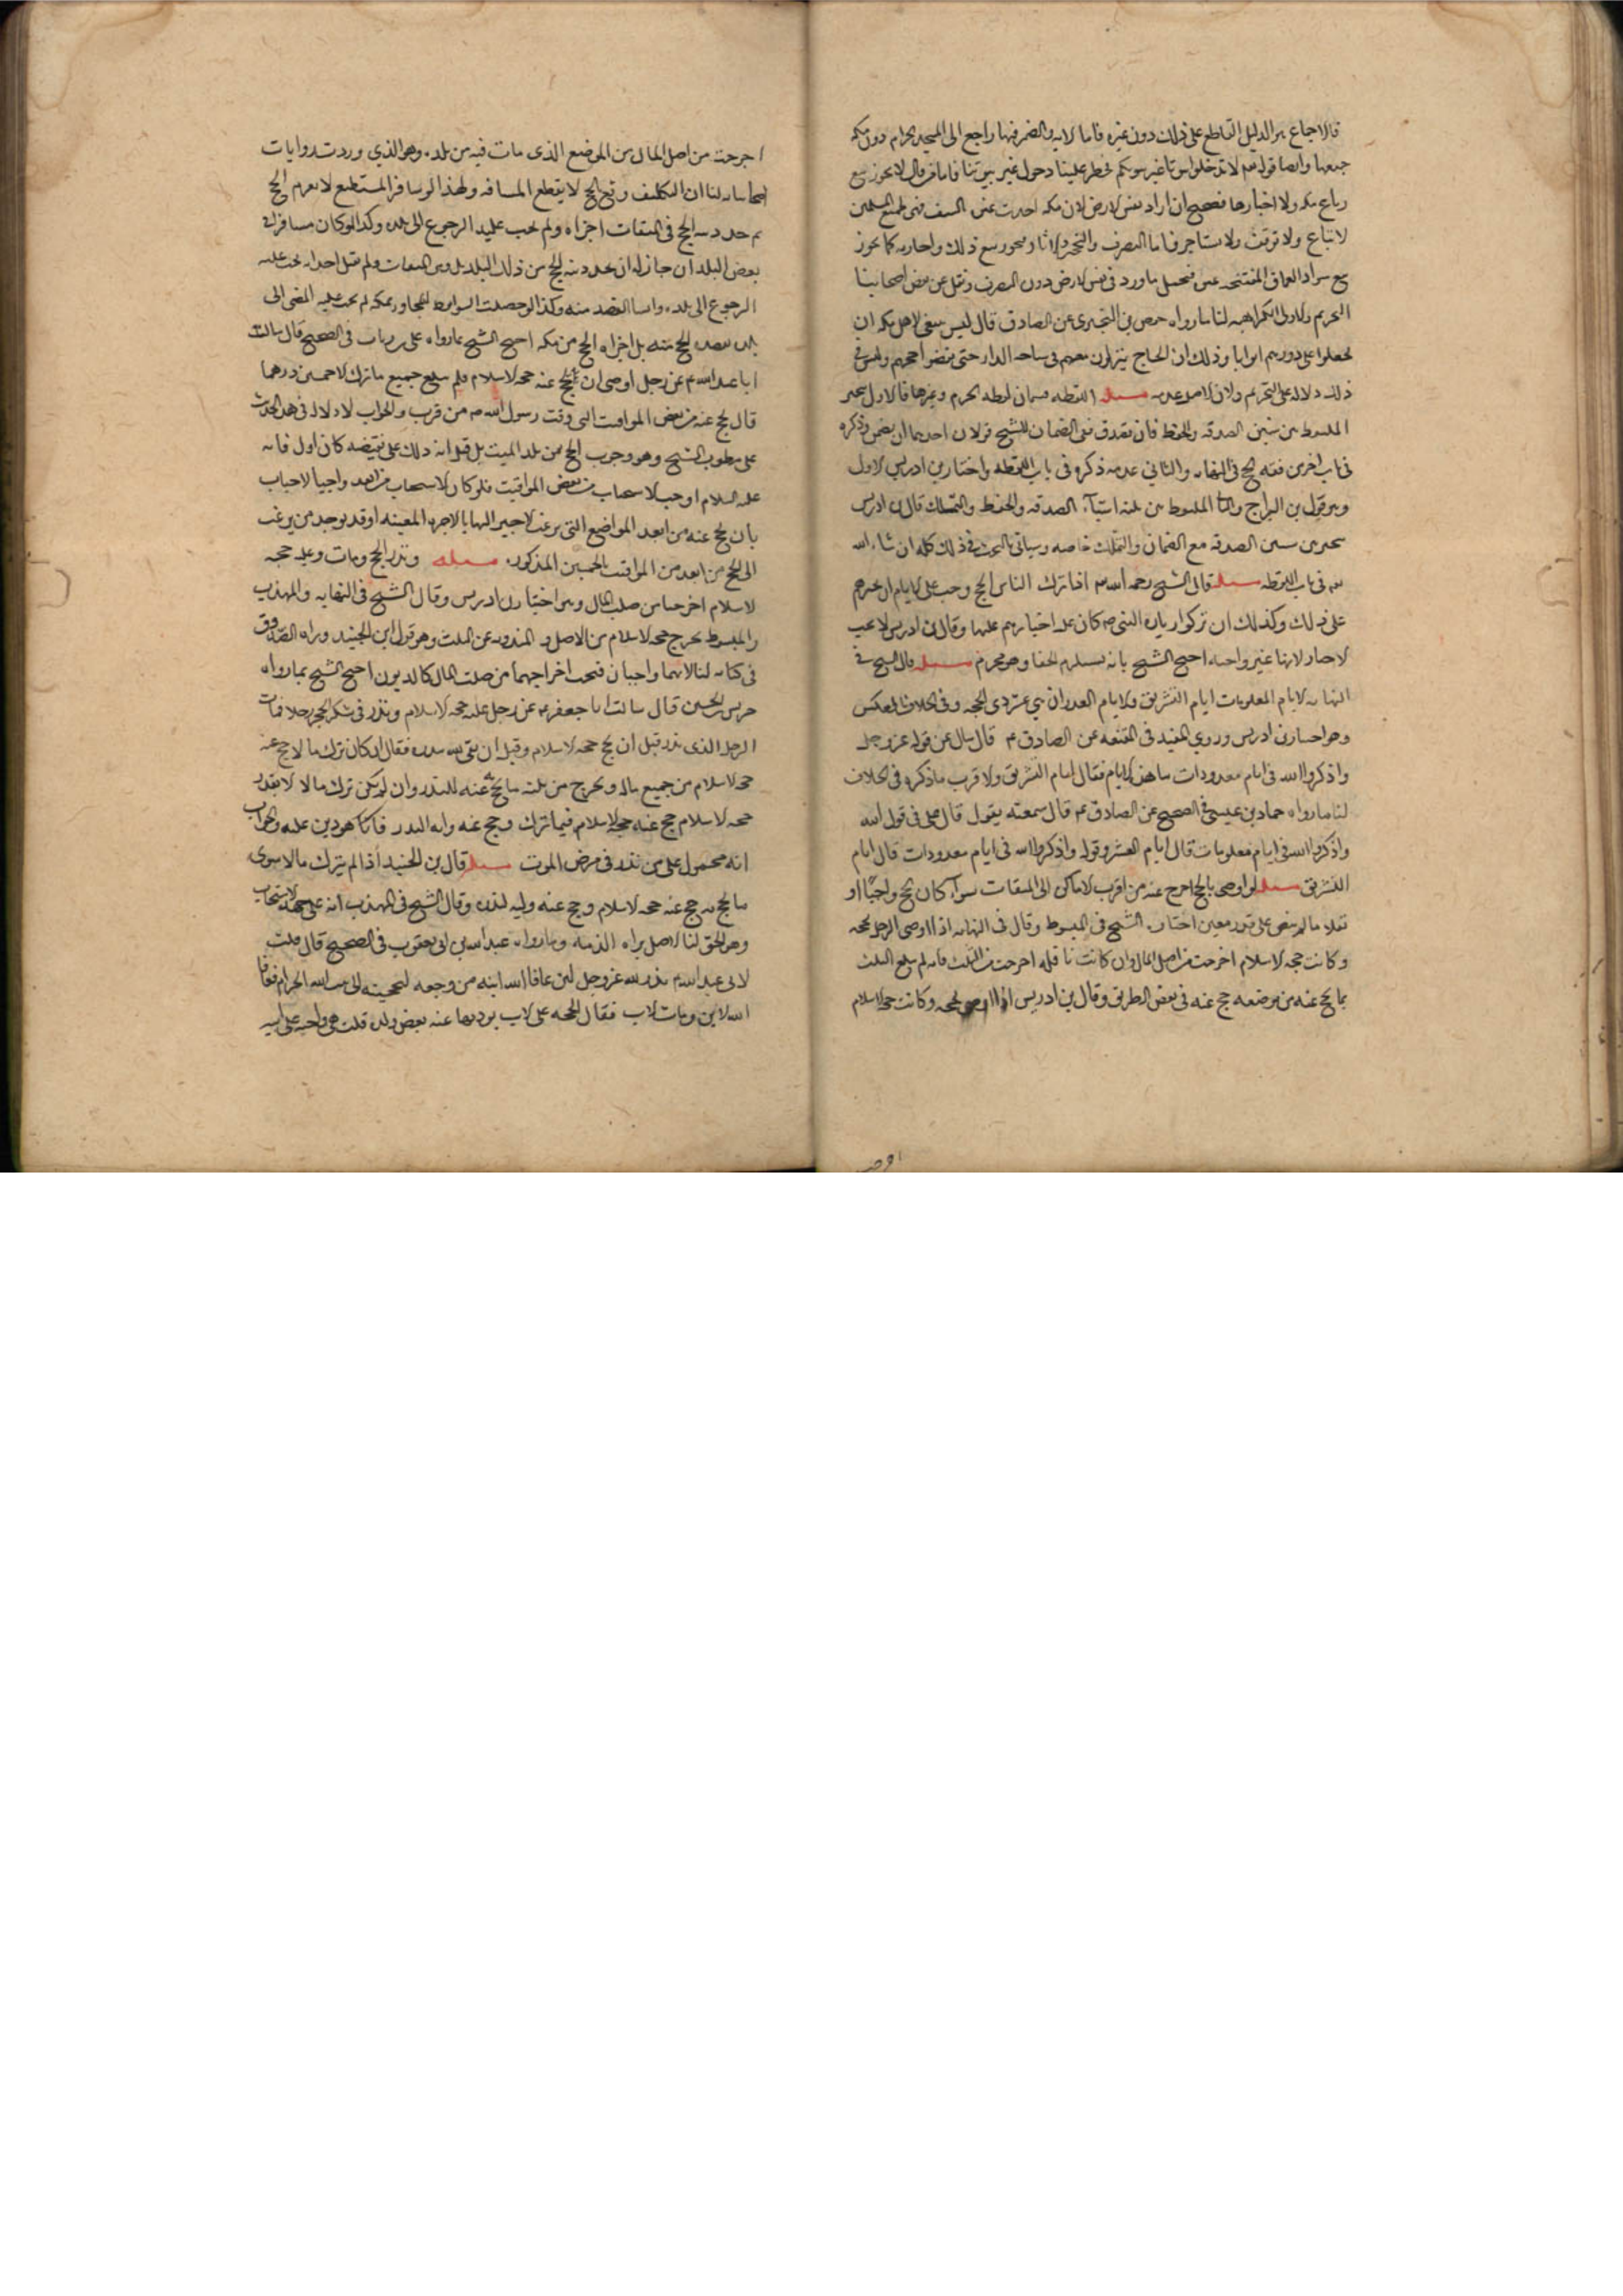 فالاجماع هو الدليل القاطع على ذلك دون غيره فاما الايه والضمير فيها راجع الى المسجد الحرام دون مكه
جميعها وايضا قوله تعم لا تدخلوا بيوتا غير بيوتكم فحظر علينا دخول غير بيوتنا فاما من قال لا يجوز بيع
رباع مكه ولا اجارها فصحيح ان اراد نفس الارض لان مكه اخذت عنوه بالسيف فهى لجميع المسلمين
لا تباع ولا توقف ولا تستاجر فاما التصرف والتحجير والاثار فيجوز بيع ذلك واجارته كما يجوز
بيع سواد العراق المفتتحه عنوه فيحمل ما ورد فى نفس الارض دون التصرف ونقل عن بعض اصحابنا
التحريم والاولى الكراهيه لنا ما رواه حفص بن البخترى عن الصادق قال ليس ينبغى لاهل مكه ان
يجعلوا على دورهم ابوابا وذلك ان الحاج ينزلون معهم فى ساحه الدار حتى يقضوا حجهم وليس فى
ذلك دلاله على التحريم ولان الاصل عدمه مسله اللقطه قسمان لقطه الحرم وغيرها فالاول يتخير
الملتقط بين شيئين الصدقه والحفظ فان تصدق ففى الضمان للشيخ قولان احدهما ان يضمن وذكره
فى باب اخر من فقه الحج فى النهايه والثاني عدمه ذكره فى باب اللقطه واختار بن ادريس الاول
وهو قول بن البراج والثانى الملتقط بين ثلثه اشيآء الصدقه والحفظ والتملك قال بن ادريس
يتخير بين شيئين الصدقه مع الضمان والتملك خاصه وسياتى البحث فى ذلك كله ان شاء الله
تعم فى باب اللقطه مسله قال الشيخ رحمه الله اذا ترك الناس الحج وجب على الامام ان يجبرهم
على ذلك وكذلك ان تركوا زياره النبى ص كان عليه اجبارهم عليها وقال بن ادريس لا يجب
الاجبار لانها غير واجبه احتج الشيخ بانه يستلزم الجفا وهو محرم مسله قال الشيخ فى
النهايه الايام المعلومات ايام التشريق والايام المعدودات هي عشر ذى الحجه وفى الخلاف بالعكس
وهو اختيار بن ادريس وروي المفيد فى المقنعه عن الصادق ع قال سال عن قوله عز وجل
واذكروا الله فى ايام معدودات ما هذه الايام فقال ايام التشريق والاقرب ما ذكره فى الخلاف
لنا ما رواه حماد بن عيسى فى الصحيح عن الصادق ع قال سمعته يقول قال على فى قول الله
واذكروا الله فى ايام معلومات قال ايام العشر وقوله واذكروا الله فى ايام معدودات قال ايام
التشريق مسله لو اوصى بالحج اخرج عنه من اقرب الاماكن الى الميقات سوآء كان الحج واجبًا او
نفلا ما لم ينص على قدر معين اختاره الشيخ فى المبسوط وقال فى النهايه اذا اوصى الرجل بحجه
وكانت حجه الاسلام اخرجت من اصل المال وان كانت نافله اخرجت من الثلث فان لم يبلغ الثلث
بما يحج عنه من موضعه حج عنه فى بعض الطريق وقال بن ادريس اذا اوصى بحجه وكانت حجه الاسلام
اخرجت من اصل المال من الموضع الذى مات فيه من بلده وهو الذي وردت روايات
اصحابنا به لنا ان التكليف وقع بالحج لا بقطع المسافه ولهذا لو سافر المستطيع لا بعزم الحج
ثم جدد نيه الحج فى الميقات اجزاه ولم يجب عليه الرجوع الى بلده وكذا لو كان مسافرا فى
بعض البلدان جاز له ان يجدد نيه الحج من ذلك البلد بل ومن الميقات ولم يقل احد انه يجب عليه
الرجوع الى بلده وانشا القصد منه وكذا لو حصلت الشرايط للمجاور بمكه لم يجب عليه المضى الى
بلده بقصد الحج منه بل اجزاه الحج من مكه احتج الشيخ بما رواه على بن رئاب فى الصحيح قال سالت
ابا عبد الله ع عن رجل اوصى ان يحج عنه حجه الاسلام فلم يبلغ جميع ما ترك الا خمسين درهما
قال يحج عنه من بعض المواقيت التى وقت رسول الله ص من قرب والجواب لا دلاله فى هذا الحديث
على مطلوب الشيخ وهو وجوب الحج من بلد الميت بل قيل انه دلاله على نقيضه كان اولى فانه
عليه السلام اوجب الاستحباب من بعض المواقيت فلو كان الاستحباب من البعد واجبا لاجاب
بان يحج عنه من ابعد المواضع التى يرغب الاجير اليها بالاجره المعينه او قد يوجد من يرغب
الى الحج من ابعد من المواقيت بالخمسين المذكوره مسله ونذر الحج ومات وعليه حجه
الاسلام اخرجتا من صلب المال وهو اختيار بن ادريس وقال الشيخ فى النهايه والمهذب
والمبسوط يخرج حجه الاسلام من الاصل والمنذوره من الثلث وهو قول ابن الجنيد ورواه الصدوق
فى كتابه لنا انهما واجبان فيجب اخراجهما من صلب المال كالديون احتج الشيخ بما رواه
ضريس قال سالت ابا جعفر ع عن رجل عليه حجه الاسلام ونذر فى شكر ليحجن رجلا فمات
الرجل الذى نذر قبل ان يحج حجه الاسلام وقبل ان يفى لله بنذره فقال ان كان ترك مالا حج عنه
حجه الاسلام من جميع ماله ويخرج من ثلثه ما يحج عنه للنذر وان لم يكن ترك مالا الا بقدر
حجه الاسلام حج عنه حجه الاسلام فيما ترك وحج عنه وليه النذر فانما هو دين عليه والجواب
انه محمول على من نذر فى مرض الموت مسله قال بن الجنيد اذا لم يترك مالا سوى
ما يحج به حج عنه حجه الاسلام وحج عنه وليه لنذره وقال الشيخ فى المهذب انه على جهه الاستحباب
وهو الحق لنا الاصل براه الذمه وما رواه عبد الله بن ابى يعقوب فى الصحيح قال قلت
لابى عبد الله ع نذر لله عز وجل لئن عافا الله ابنه من وجعه ليحجنه الى بيت الله الحرام فعافا
الله الابن ومات الاب فقال الحجه على الاب يوديها عنه بعض ولده قلت هى واجبه على ابيه